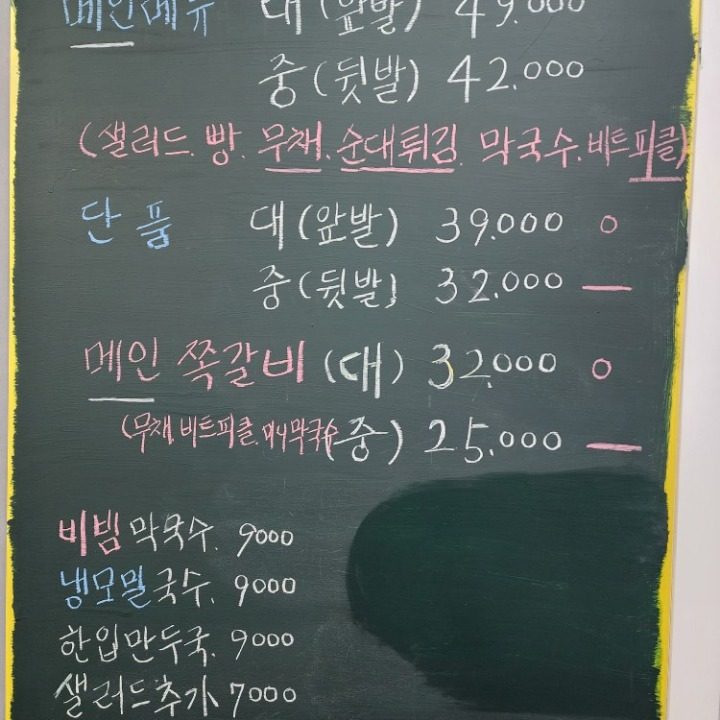 메인메뉴 대 (앞발) 49.000
중 (뒷발) 42.000
(샐러드. 빵. 무채. 순대튀김. 막국수. 비트피클)
단품 대 (앞발) 39.000 o
중 (뒷발) 32.000 —
메인 쪽갈비 (대) 32.000 o
(무채. 비트피클. 미니막국수) (중) 25.000 —
비빔막국수. 9000
냉모밀국수. 9000
한입만두국. 9000
샐러드추가 7000